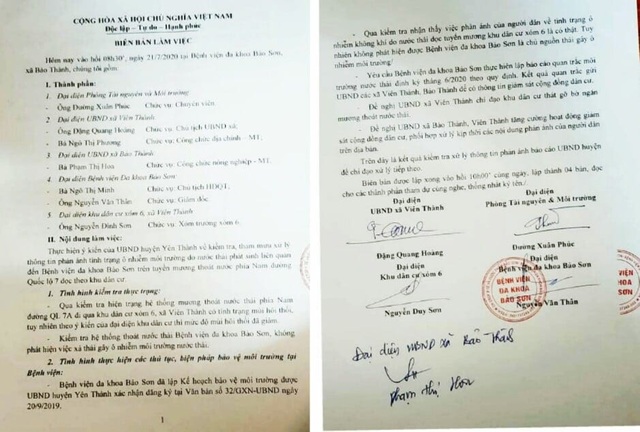 CỘNG HÒA XÃ HỘI CHỦ NGHĨA VIỆT NAM
Độc lập – Tự do – Hạnh phúc
BIÊN BẢN LÀM VIỆC
Hôm nay vào hồi 08h30', ngày 21/7/2020 tại Bệnh viện đa khoa Bảo Sơn,
xã Bảo Thành, chúng tôi gồm
I. Thành phần:
1. Đại diện Phòng Tài nguyên và Môi trường
- Ông Dương Xuân Phúc Chức vụ: Chuyên viên
2. Đại diện UBND xã Viên Thành
- Ông Đặng Quang Hoàng Chức vụ: Chủ tịch UBND xã;
- Bà Ngô Thị Phương Chức vụ: Công chức địa chính - MT.
3. Đại diện UBND xã Bảo Thành
- Bà Phạm Thị Hoa Chức vụ: Công chức nông nghiệp - MT.
4. Đại diện Bệnh viện Đa khoa Bảo Sơn
- Bà Ngô Thị Minh Chức vụ: Chủ tịch HĐQT.
- Ông Nguyễn Văn Thân Chức vụ: Giám đốc.
5. Đại diện khu dân cư xóm 6, xã Viên Thành
- Ông Nguyễn Đình Sơn Chức vụ: Xóm trưởng xóm 6.
II. Nội dung làm việc:
Thực hiện ý kiến của UBND huyện Yên Thành về kiểm tra, tham mưu xử lý
thông tin phản ánh tình trạng ô nhiễm môi trường do nước thải phát sinh liên quan
đến Bệnh viện đa khoa Bảo Sơn trên tuyến mương thoát nước phía Nam đường
Quốc lộ 7 dọc theo khu dân cư.
1. Tình hình kiểm tra thực trạng:
- Qua kiểm tra hiện trạng hệ thống mương thoát nước thải phía Nam
đường QL 7A đi qua khu dân cư xóm 6, xã Viên Thành có tình trạng mùi hôi thối,
tuy nhiên theo ý kiến của đại diện khu dân cư thì mức độ mùi hôi thối đã giảm.
- Kiểm tra hệ thống thoát nước thải Bệnh viện đa khoa Bảo Sơn, không
phát hiện việc xả thải gây ô nhiễm môi trường nước thải.
2. Tình hình thực hiện các thủ tục, biện pháp bảo vệ môi trường tại
Bệnh viện:
- Bệnh viện đa khoa Bảo Sơn đã lập Kế hoạch bảo vệ môi trường được
UBND huyện Yên Thành xác nhận đăng ký tại Văn bản số 32/GXN-UBND ngày
20/9/2019.
1
- Qua kiểm tra nhận thấy việc phản ánh của người dân về tình trạng ô
nhiễm không khí do nước thải dọc tuyến mương khu dân cư xóm 6 là có thật. Tuy
nhiên không phát hiện được Bệnh viện đa khoa Bảo Sơn là chủ nguồn thải gây ô
nhiễm môi trường/
- Yêu cầu Bệnh viện đa khoa Bảo Sơn thực hiện lập báo cáo quan trắc môi
trường nước thải định kỳ tháng 6/2020 theo quy định. Kết quả quan trắc gửi
UBND các xã Viên Thành, Bảo Thành để có thông tin giám sát cộng đồng dân cư.
- Đề nghị UBND xã Viên Thành chỉ đạo khu dân cư thát gỡ bờ ngăn
mương thoát nước thải.
- Đề nghị UBND xã Bảo Thành, Viên Thành tăng cường hoạt động giám
sát cộng đồng dân cư, phối hợp xử lý kịp thời các nội dung phản ánh của người dân
trên địa bàn.
Trên đây là kết quả kiểm tra xử lý thông tin phản ánh báo cáo UBND huyện
để chỉ đạo xử lý tiếp theo.
Biên bản được lập xong vào hồi 10h00' cùng ngày, lập thành 04 bản, đọc
cho các thành phần tham dự cùng nghe, thống nhất ký tên./.
Đại diện
UBND xã Viên Thành
Đại diện
Phòng Tài nguyên & Môi trường
Đặng Quang Hoàng
Dương Xuân Phúc
Đại diện
Khu dân cư xóm 6
Đại diện
Bệnh viện đa khoa Bảo Sơn
BỆNH VIỆN
ĐA KHOA
BẢO SƠN
Nguyễn Duy Sơn
Nguyễn Văn Thân
Đại diện UBND xã Bảo Thành
Phạm Thị Hoa